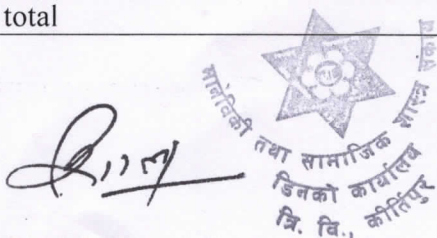 total
मानविकी तथा सामाजिक शास्त्र संकाय
डिनको कार्यालय
त्रि. वि., कीर्तिपुर